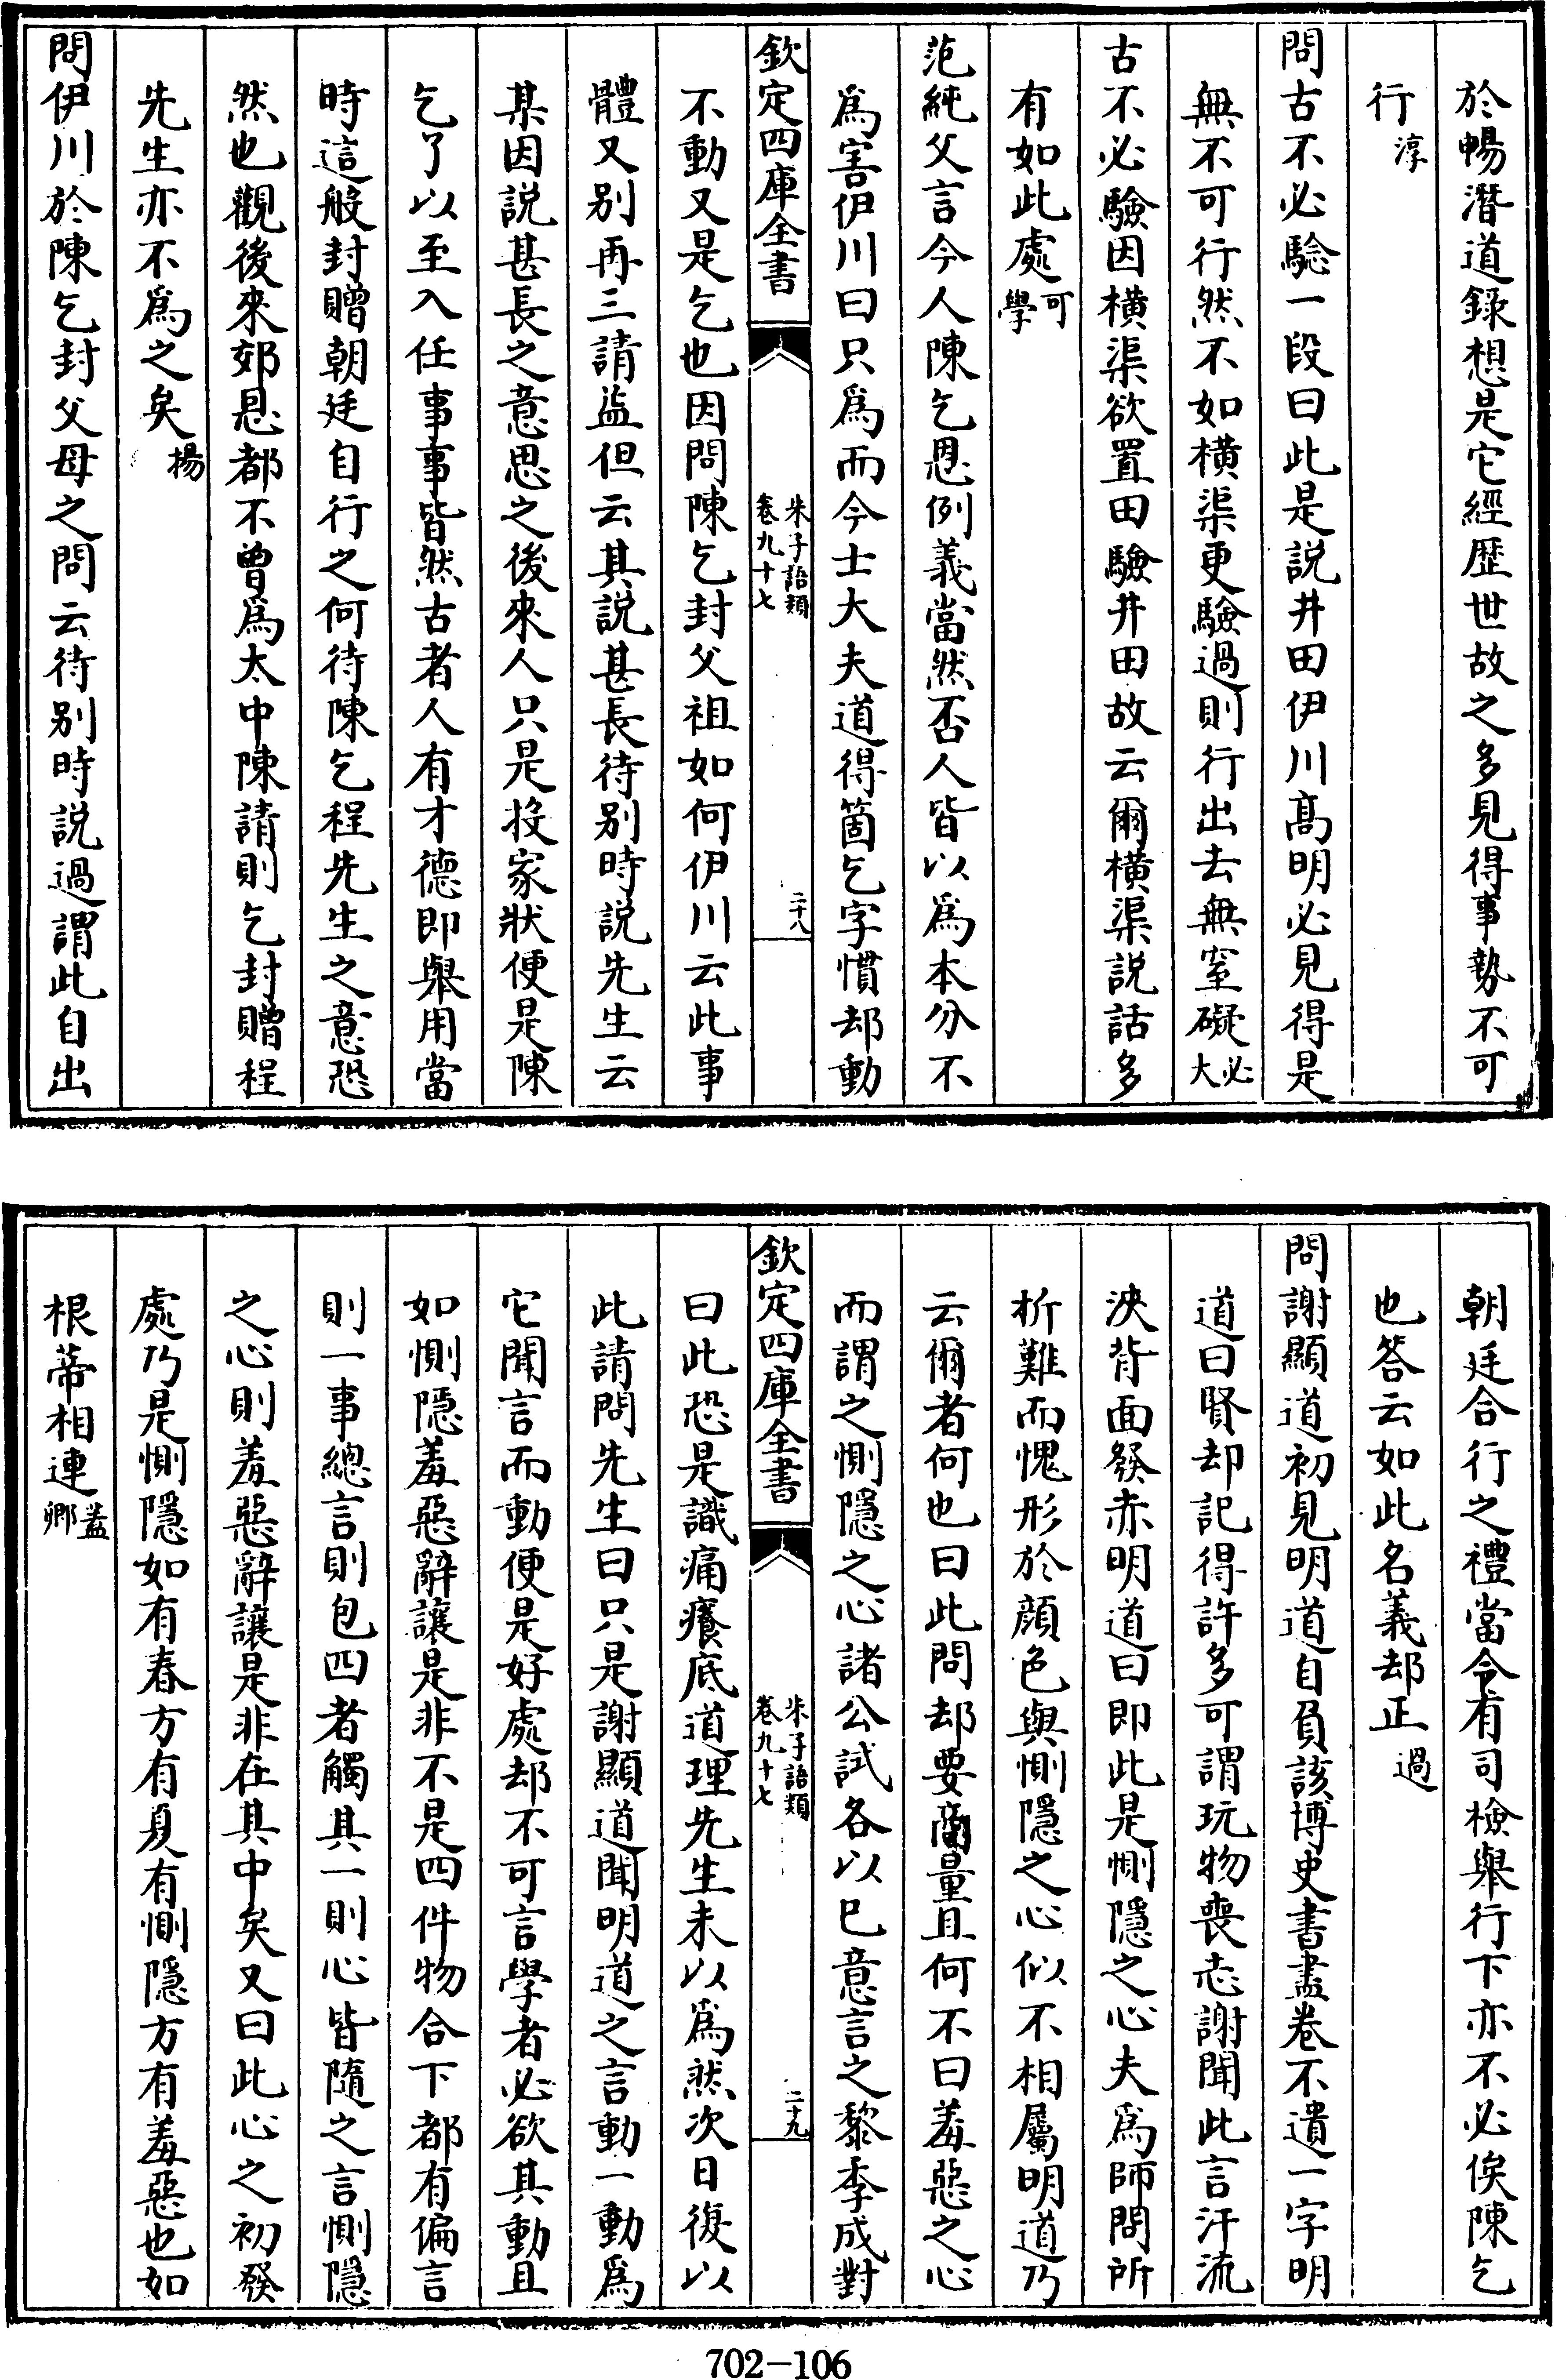 於暢潛道錄想是它經歴世故之多見得事勢不可
行淳
問古不必驗一段曰此是説井田伊川髙明必見得是
無不可行然不如横渠更驗過則行出去無窒礙必大
古不必驗因橫渠欲置田驗井田故云爾橫渠説話多
有如此處可學
范純父言今人陳乞恩例義當然否人皆以為本分不
為害伊川曰只為而今士大夫道得箇乞字慣却動
欽定四庫全書
朱子語類
卷九十七
二十八
不動又是乞也因問陳乞封父祖如何伊川云此事
體又别再三請益但云其説甚長待别時説先生云
某因説甚長之意思之後來人只是投家狀便是陳
乞了以至入任事事皆然古者人有才德即舉用當
時這般封贈朝廷自行之何待陳乞程先生之意恐
然也觀後來郊恩都不曽為太中陳請則乞封贈程
先生亦不為之矣揚
問伊川於陳乞封父母之問云待别時説過謂此自出
朝廷合行之禮當令有司檢舉行下亦不必俟陳乞
也答云如此名義却正過
問謝顯道初見明道自負該博史書盡卷不遺一字明
道曰賢却記得許多可謂玩物喪志謝聞此言汗流
浹背面發赤明道曰即此是惻隱之心夫為師問所
析難而愧形於顔色與惻隱之心似不相屬明道乃
云爾者何也曰此問却要商量且何不曰羞惡之心
而謂之惻隱之心諸公試各以已意言之黎季成對
欽定四庫全書
朱子語類
卷九十七
二十九
曰此恐是識痛癢底道理先生未以為然次日復以
此請問先生曰只是謝顯道聞明道之言動一動為
它聞言而動便是好處却不可言學者必欲其動且
如惻隱羞惡辭讓是非不是四件物合下都有偏言
則一事總言則包四者觸其一則心皆隨之言惻隱
之心則羞惡辭讓是非在其中矣又曰此心之初發
處乃是惻隱如有春方有夏有惻隱方有羞惡也如
根蒂相連葢卿
702-106